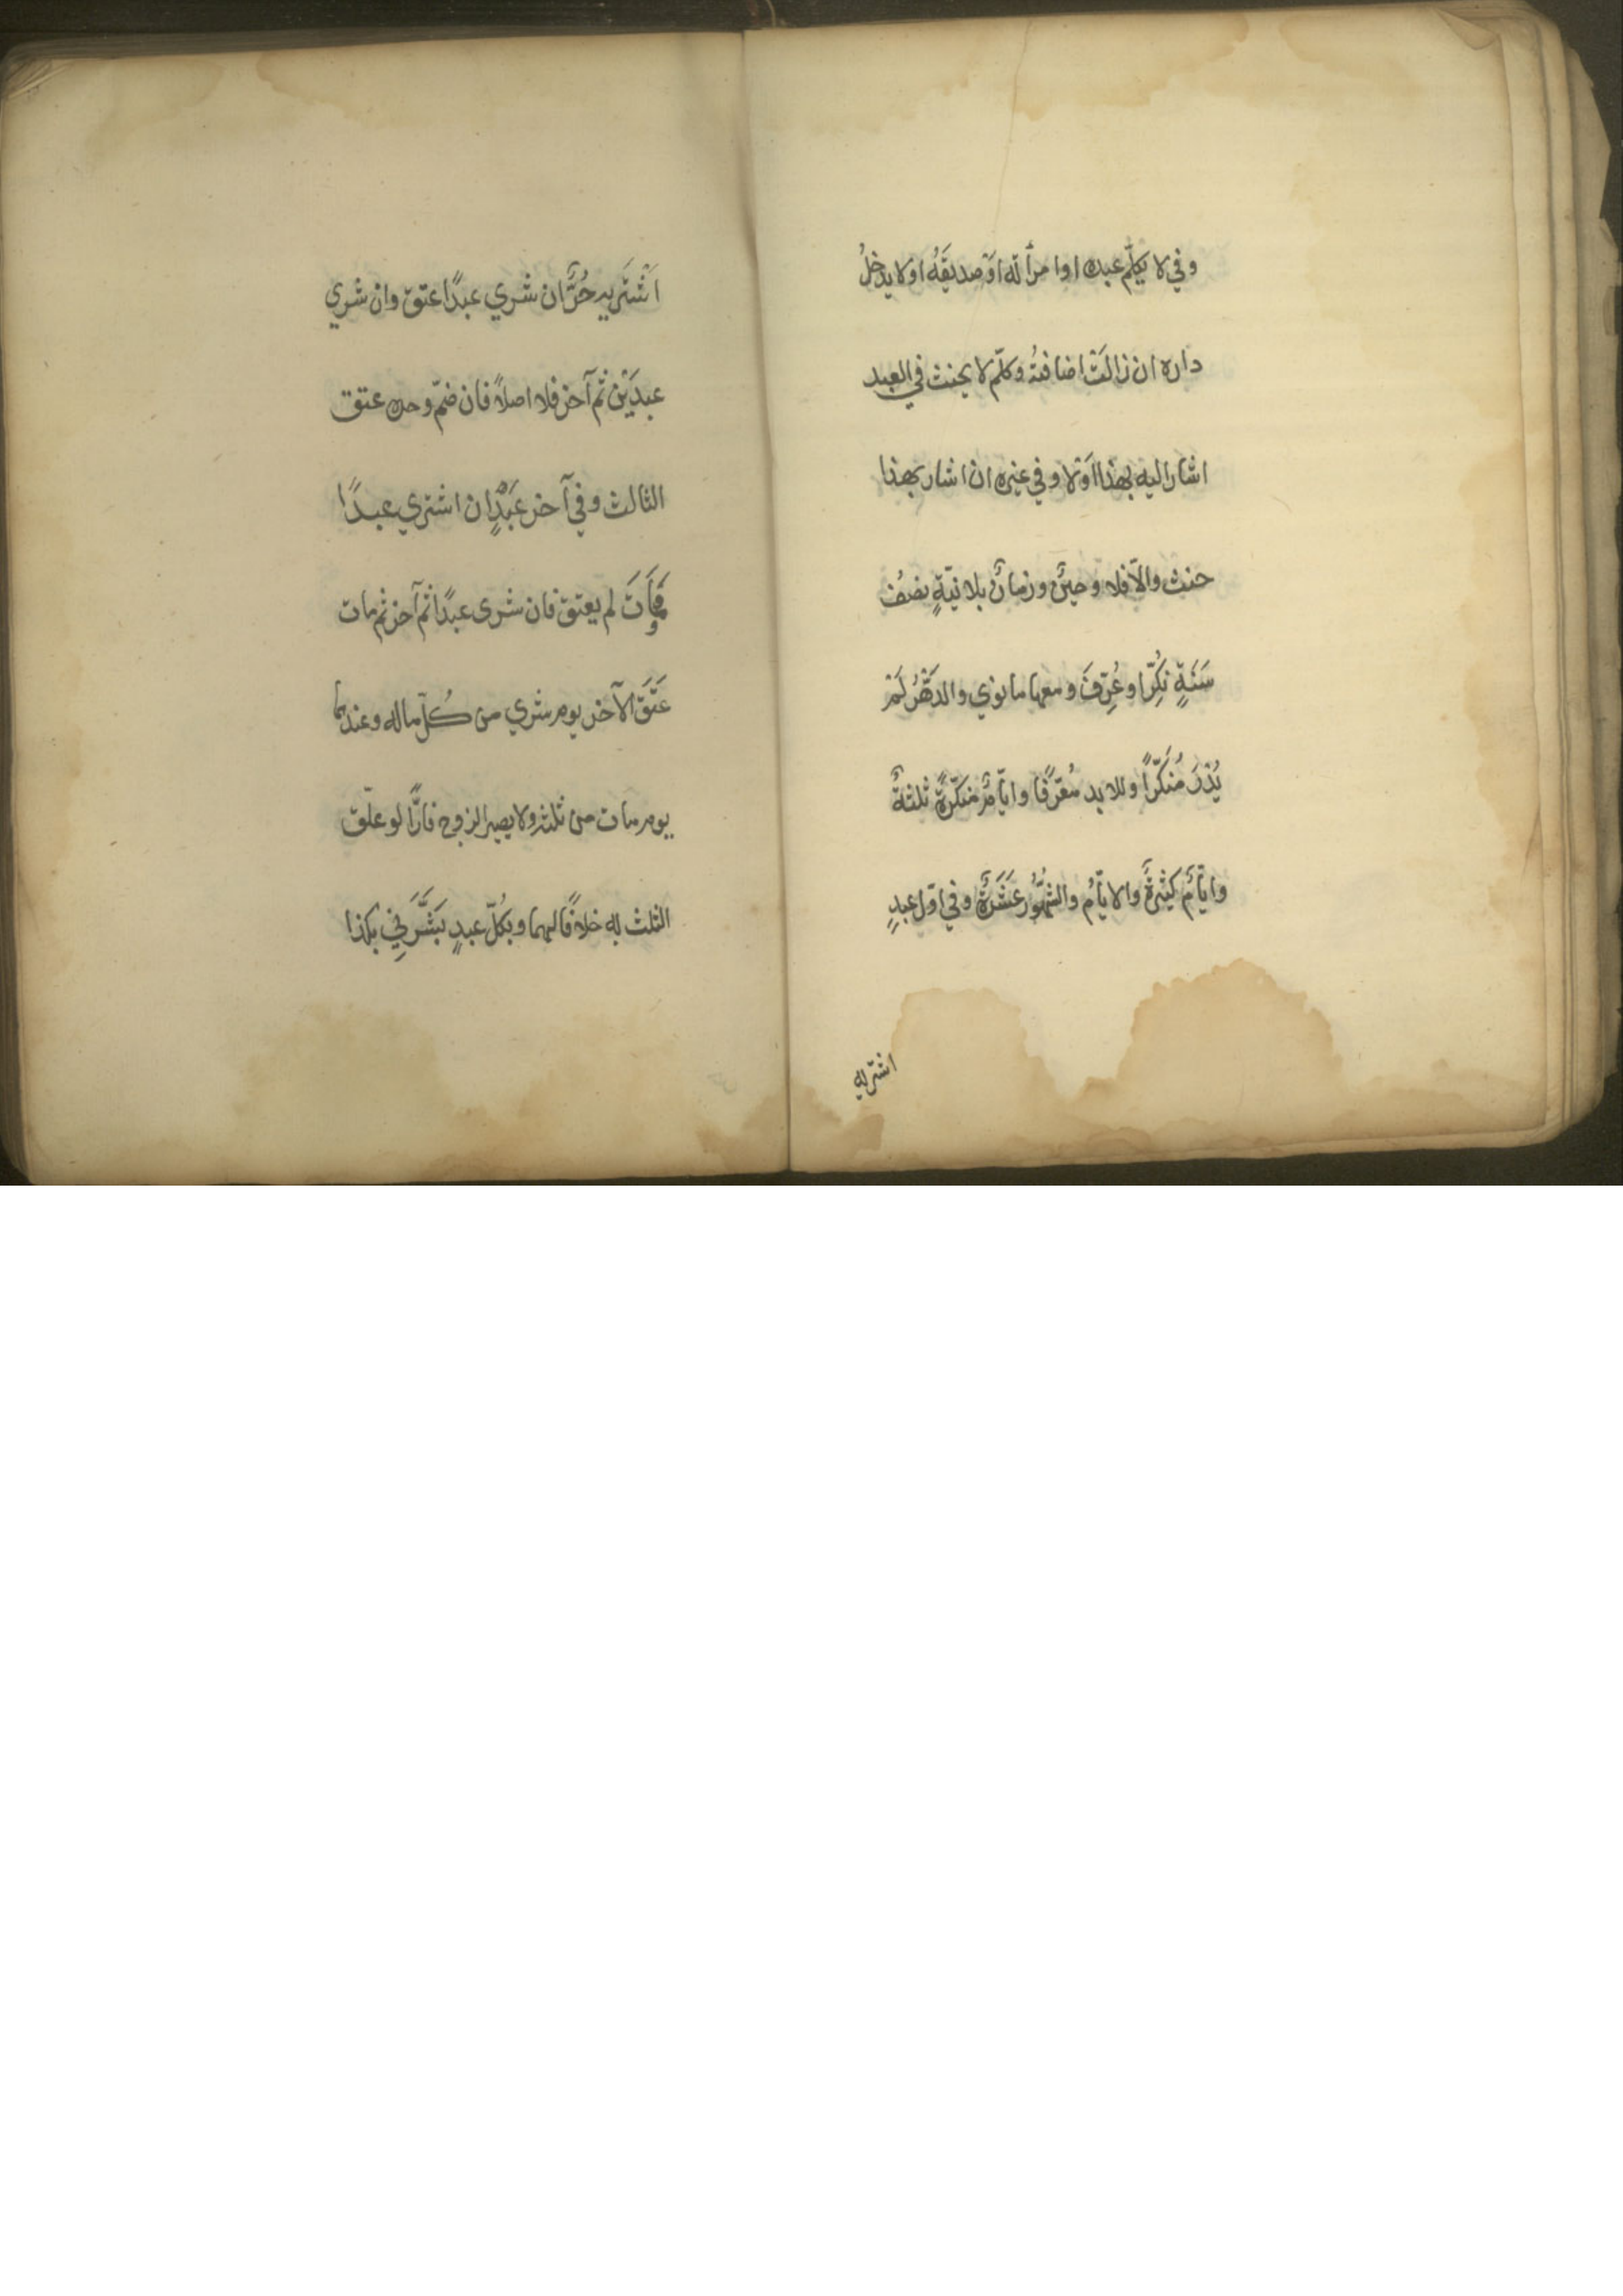 وفي لا يكلّم عبده او امرأته اوْ صديقَهُ او لا يدخلُ
داره ان زالَتْ اضافتهُ وكلّم لا يحنث في العبد
اشار اليه بهذا اَوْ لا وفي غيره ان اشار بهذا
حنث والّا فلا وحينٌ وزمانٌ بلا نيّةٍ نصْفُ
سَنَةٍ نُكِّرا وعُرِّفَ ومعها ما نوي والدَهْرُ لَمْ
يُدْرَ مُنَكَّرًا وللابد مُعَرَّفًا وايّامٌ منكّرةٌ ثلثةٌ
وايّامٌ كثيْرةٌ والايّامُ والشُهُوُر عَشَرَةٌ وفي اوّل عبدٍ
اشتريه
اَشْتَريه حُرٌّ ان شري عبدًا عتق وان شري
عبدَيْن ثم آخر فلا اصلاً فان ضمّ وحده عتق
الثالث وفي آخر عَبْدٍ ان اشتري عبدًا
وَمَاتَ لم يعتق فان شرى عبدًا ثم آخر ثم مات
عَتَقَ الآخر يوم شري من كُلّ ماله وعندهما
يوم مات من ثلثه ولا يصير الزوج فارًّا لو علّق
الثلث به خلافًا لهما وبكُلّ عبدٍ بَشَّرَنِي بكذا